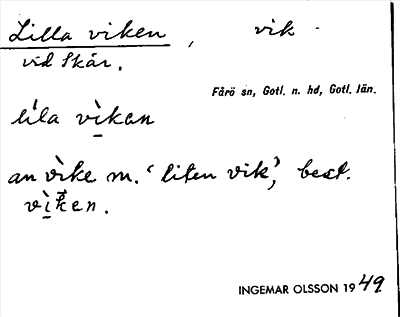 Lilla viken, vik
vid Skär.
Fårö sn, Gotl. n. hd, Gotl. län.
líla vìkan
an vìke m. ‘liten vik’, best.
vìken.
INGEMAR OLSSON 1949